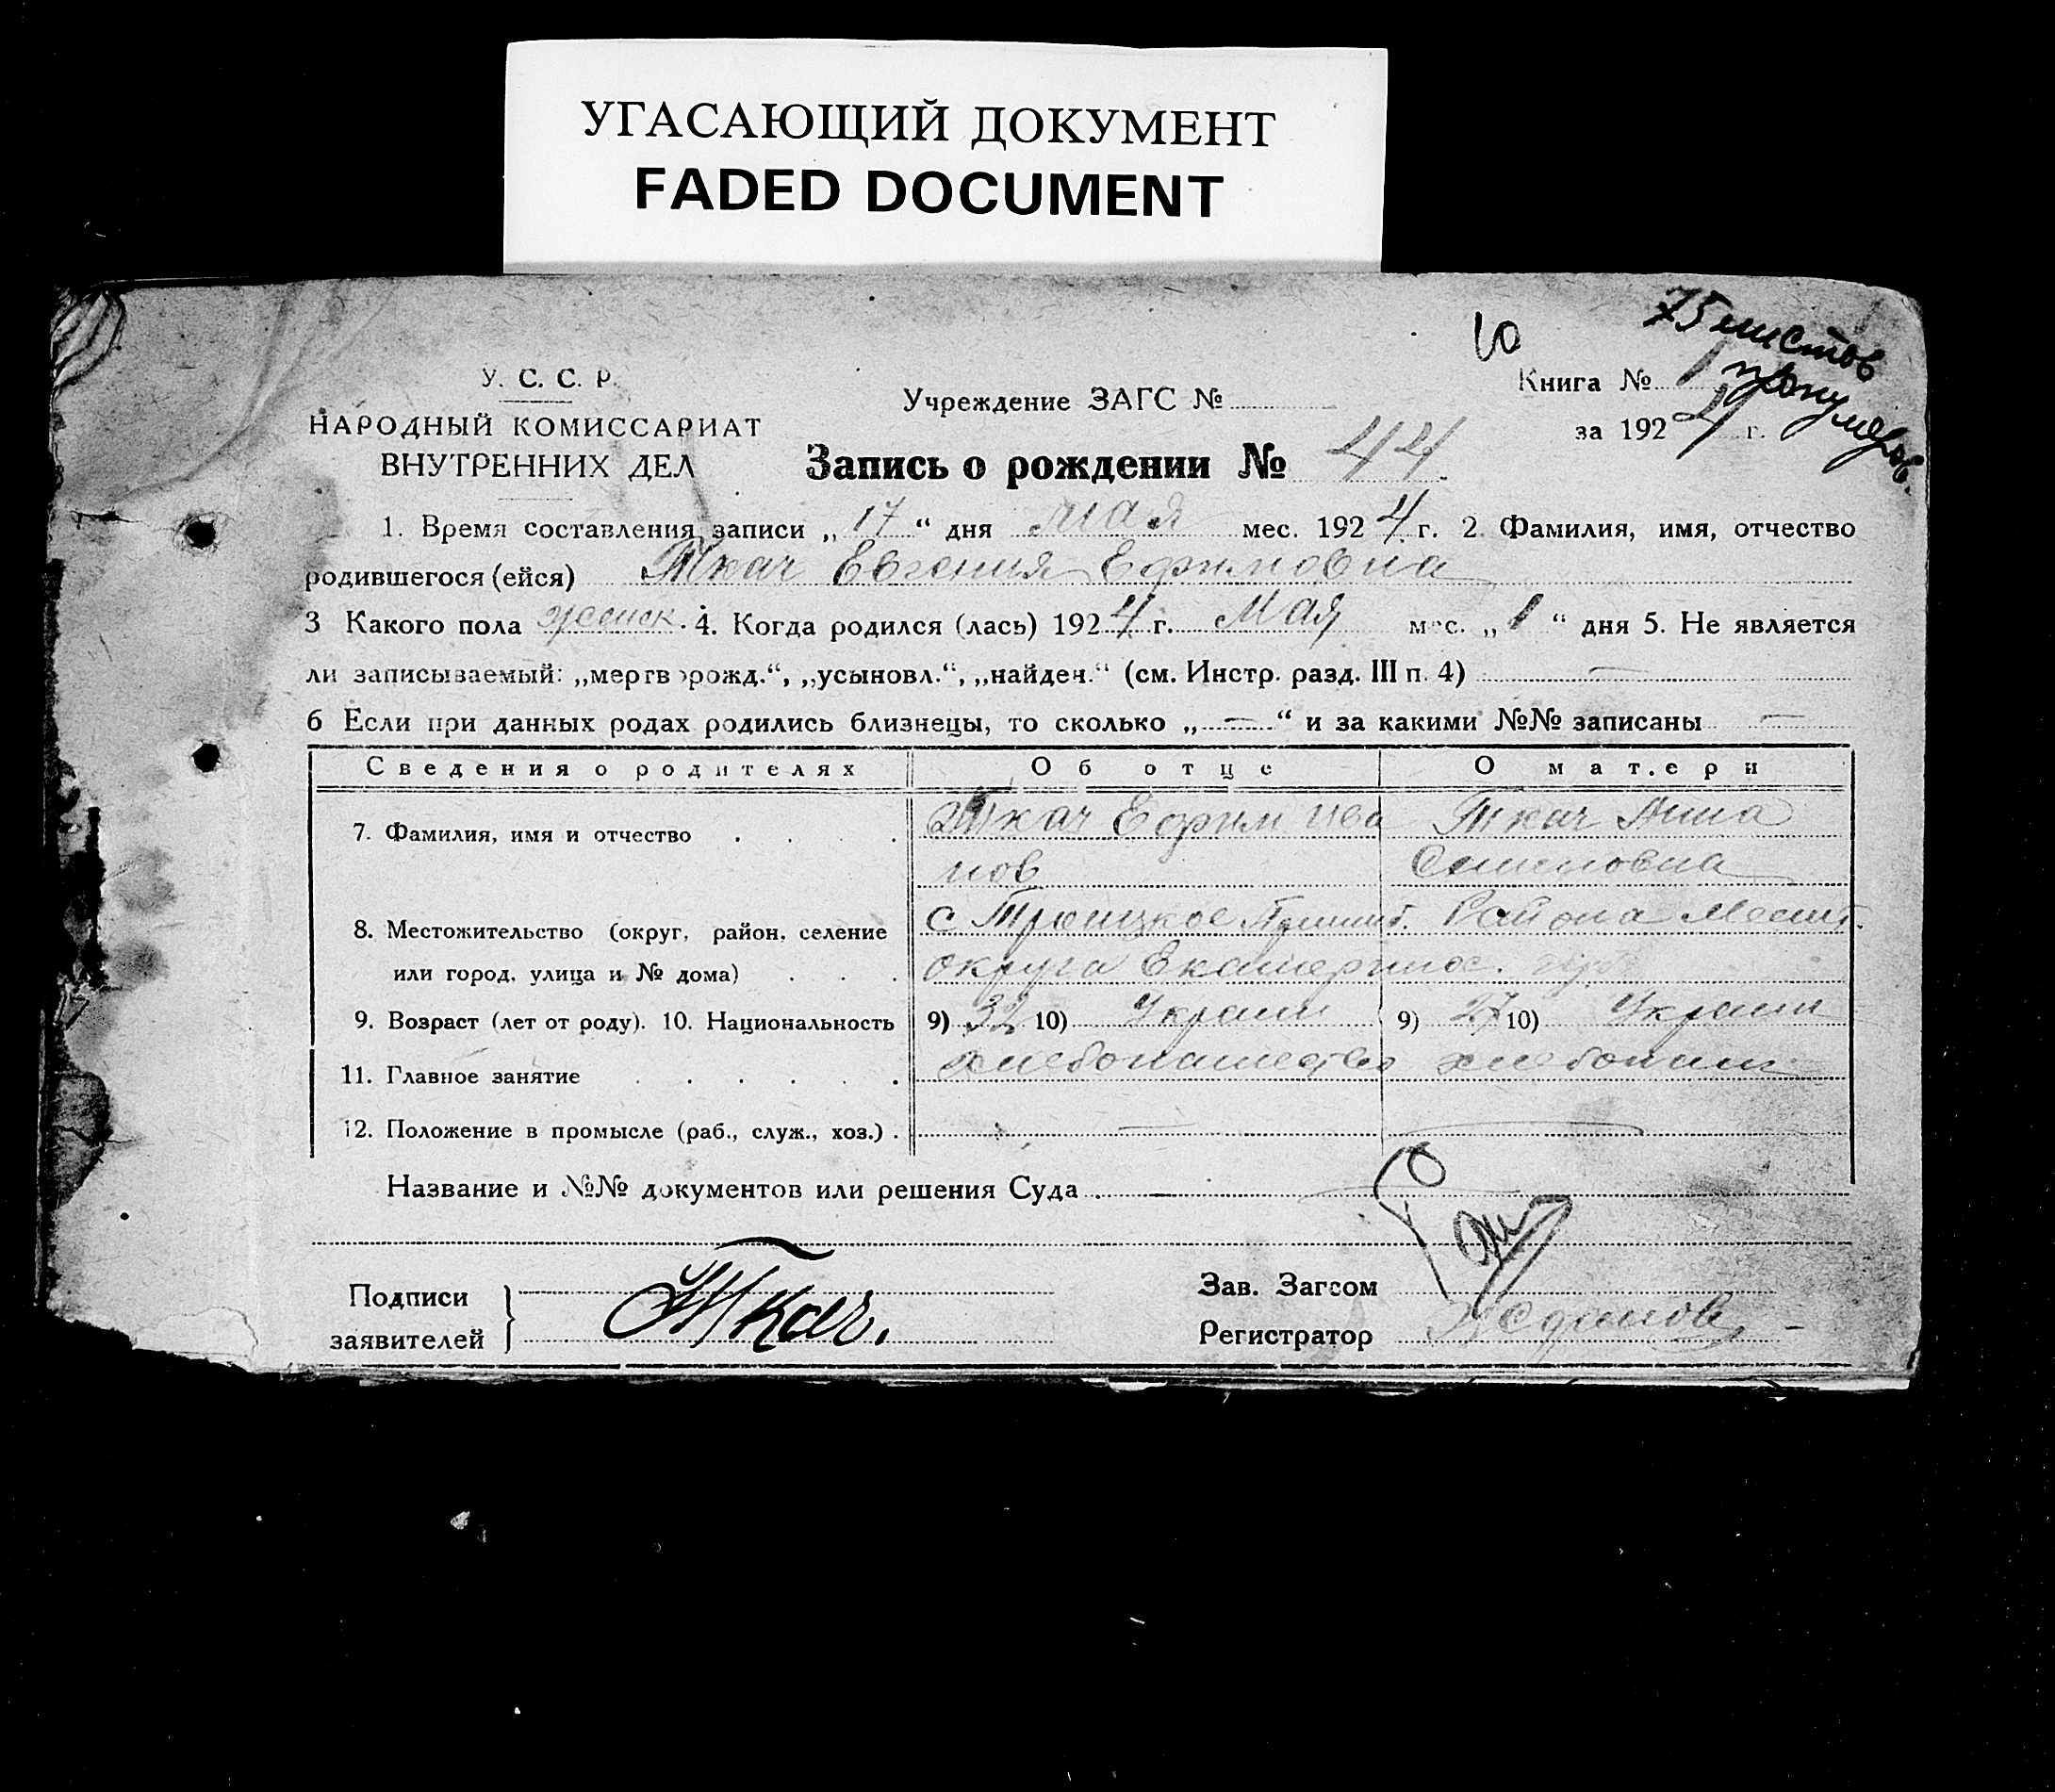 УГАСАЮЩИЙ ДОКУМЕНТ
FADED DOCUMENT
10
75 листов
пронумеров.
У. С. С. Р.
НАРОДНЫЙ КОМИССАРИАТ
ВНУТРЕННИХ ДЕЛ
Учреждение ЗАГС №
Книга № 1
за 1924 г.
Запись о рождении № 44
1. Время составления записи „17“ дня мая мес. 1924 г. 2. Фамилия, имя, отчество
родившегося (ейся) Ткач Евгения Ефимовна
3 Какого пола женск. 4. Когда родился (лась) 1924 г. Мая мес. „1“ дня 5. Не является
ли записываемый: „мертворожд.“, „усыновл.“, „найден.“ (см. Инстр. разд. III п. 4) —
6 Если при данных родах родились близнецы, то сколько „—“ и за какими №№ записаны —
Сведения о родителях Об отце О матери
7. Фамилия, имя и отчество Ткач Ефим Ива Ткач Анна
нов Семеновна
8. Местожительство (округ, район, селение с Троицкое Района
или город, улица и № дома) округа Екатеринос.
9. Возраст (лет от роду). 10. Национальность 9) 32 10) Украин 9) 27 10) Украин
11. Главное занятие хлебопашество хлебопаш
12. Положение в промысле (раб., служ., хоз.) — —
Название и №№ документов или решения Суда —
Подписи
заявителей
Ткач.
Зав. Загсом
Регистратор